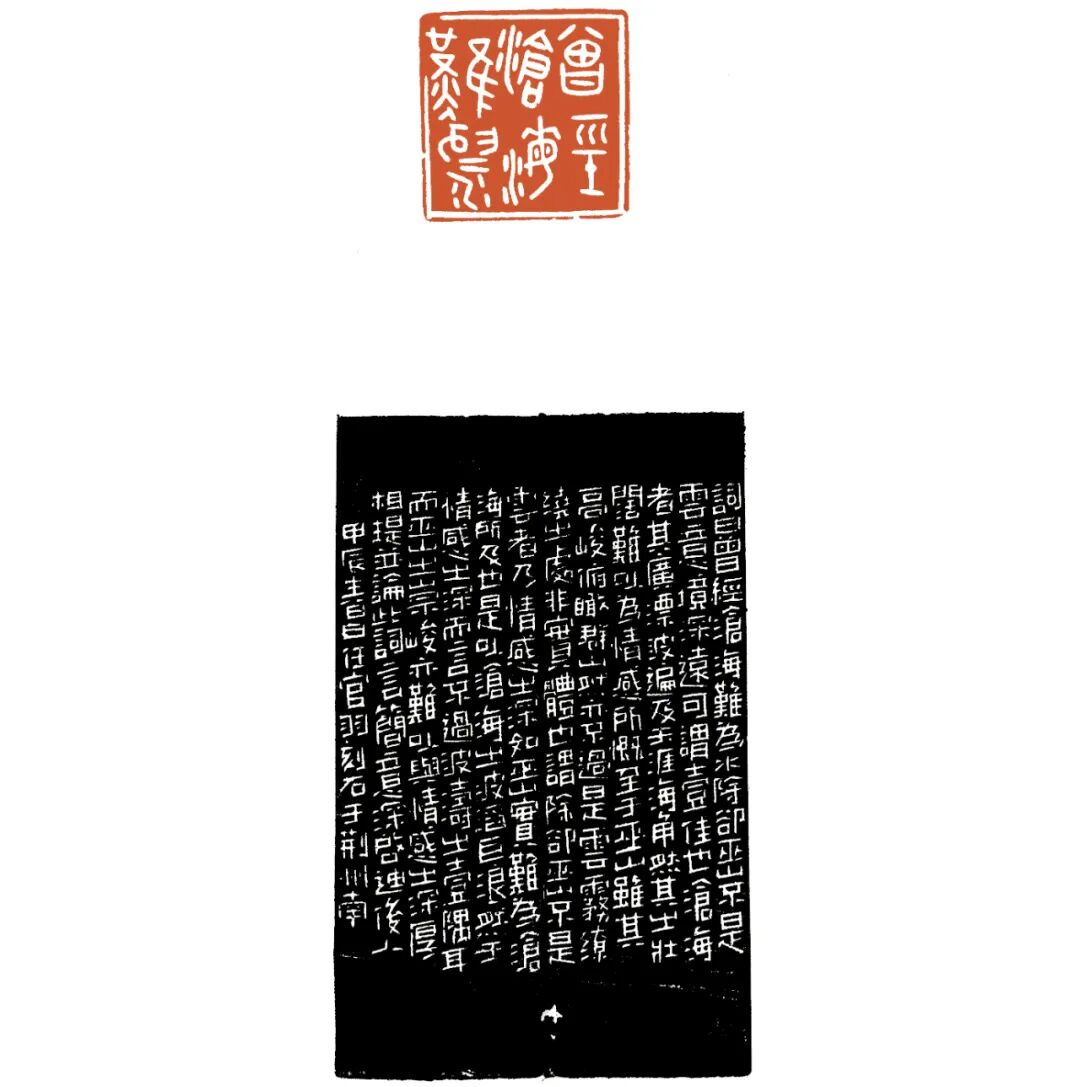 曾經
滄海
難為水
詞曰曾經滄海難為水除卻巫山不是
雲意之境深遠可謂壹佳也滄海
者其廣票波遍及天涯海角然其之壯
闊難以為情感所慨至于巫山雖其
高峻俯瞰群山然亦不過是雲霧繚
繞之處非實體也謂除卻巫山不是
雲者乃情感之深如巫山實難為滄
海所及也是以滄海之波滔巨浪然于
情感之深而言不過波濤之壹隅耳
而巫山之崇峻亦難以與情感之深厚
相提並論此詞言簡意深啟迪後人
甲辰春日任官羽刻石于荊州南